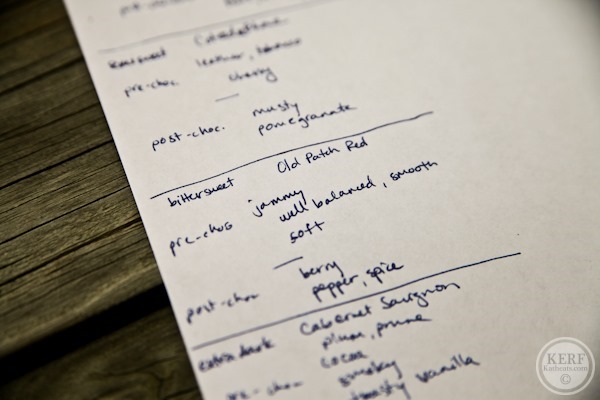 leather, tobacco
pre-choc cherry
post-choc. musty
pomegranate
bittersweet Old Patch Red
pre-choc jammy
well balanced, smooth
soft
post-choc berry
pepper, spice
extra dark Cabernet Sauvignon
plum, prune
pre-choc cocoa
smoky
toasty vanilla
KERF
Katheats.com
©